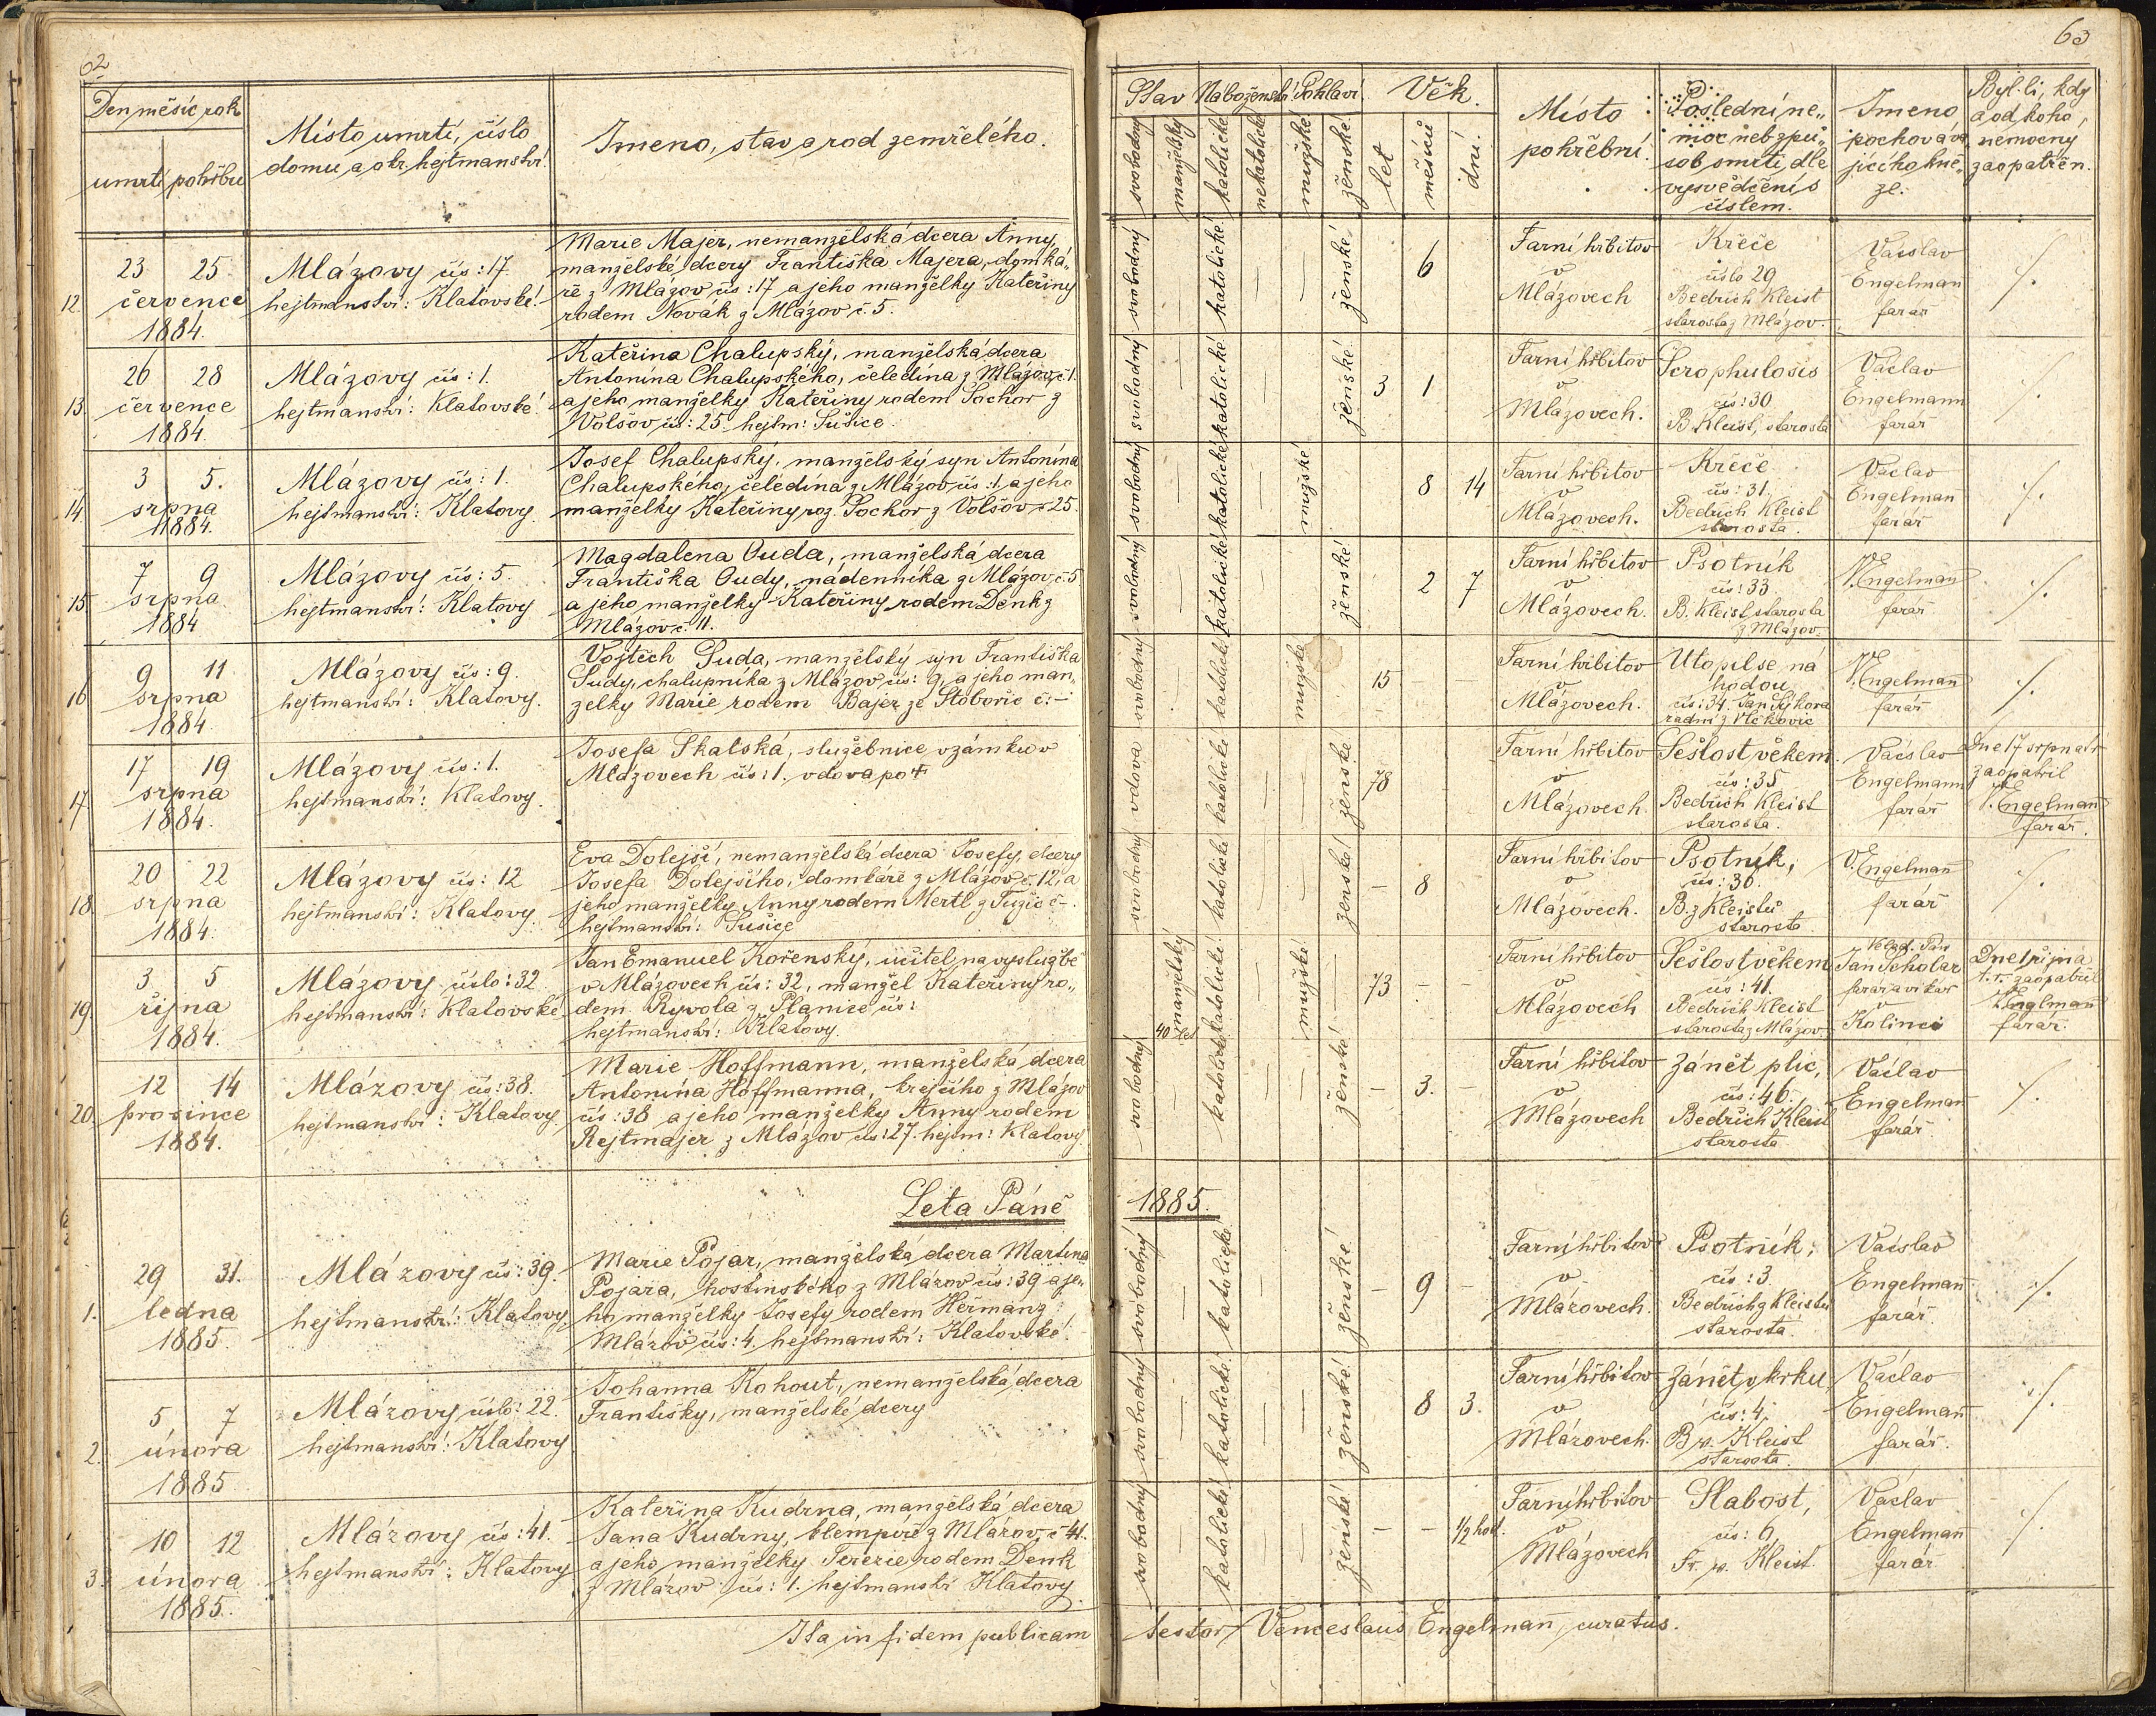 62
Den měsíc rok
umrtí pohřbu
Místo umrtí, číslo
domu a okr. hejtmanství.
Jmeno, stav a rod zemřelého.
12. 23 25
července
1884.
Mlázovy čís: 17.
hejtmanství: Klatovské.
Marie Majer, nemanželská dcera Anny,
manželské dcery Františka Majera, domká„
ře z Mlázov čís: 17 a jeho manželky Kateřiny
rodem Novák z Mlázov č. 5.
13. 26 28
července
1884.
Mlázovy čís: 1.
hejtmanství: Klatovské.
Kateřina Chalupský, manželská dcera
Antonína Chalupského, čeledína z Mlázov č 1.
a jeho manželky Kateřiny rodem Pochor z
Volšov čís: 25. hejtm: Sušice.
14. 3 5.
srpna
1884.
Mlázovy čís: 1.
hejtmanství: Klatovy.
Josef Chalupský, manželský syn Antonína
Chalupského, čeledína z Mlázov čís: 1, a jeho
manželky Kateřiny roz. Pochor z Volšov č 25.
15. 7 9
srpna
1884
Mlázovy čís: 5.
hejtmanství: Klatovy
Magdalena Ouda, manželská dcera
Františka Oudy, nádenníka z Mlázov č. 5
a jeho manželky Kateřiny rodem Denk z
Mlázov č. 11.
16. 9 11.
srpna
1884.
Mlázovy čís: 9.
hejtmanství: Klatovy.
Vojtěch Suda, manželský syn Františka
Sudy, chalupníka z Mlázov čís: 9, a jeho man„
želky Marie rodem Bajer ze Stobořic č: –
17. 17 19
srpna
1884.
Mlázovy čís: 1.
hejtmanství: Klatovy.
Josefa Skalská, služebnice v zámku v
Mlázovech čís: 1. vdova po †
18. 20 22
srpna
1884.
Mlázovy čís: 12
hejtmanství: Klatovy.
Eva Dolejší, nemanželská dcera Josefy, dcery
Josefa Dolejšího, domkaře z Mlázov č. 12, a
jeho manželky Anny rodem Mertl z Tužic č –.
hejtmanství: Sušice
19. 3 5
října
1884.
Mlázovy číslo: 32
hejtmanství: Klatovské.
Jan Emanuel Kořenský, učitel na vyslužbě
v Mlázovech čís: 32, manžel Kateřiny ro„
dem Ryvola z Planice čís:
hejtmanství: Klatovy.
20. 12 14
prosince
1884.
Mlázovy čís: 38.
hejtmanství: Klatovy.
Marie Hoffmann, manželská dcera
Antonína Hoffmanna, krejčího z Mlázov
čís: 38 a jeho manželky Anny rodem
Rejtmajer z Mlázov čís: 27. hejtm: Klatovy.
Leta Páně
1. 29 31.
ledna
1885.
Mlázovy čís: 39.
hejtmanství: Klatovy.
Marie Pojar, manželská dcera Martina
Pojara, hostinského z Mlázov čís: 39 a je„
ho manželky Josefy rodem Heřman z
Mlázov čís: 4. hejtmanství: Klatovské.
2. 5 7
února
1885
Mlázovy číslo: 22.
hejtmanství: Klatovy
Johanna Kohout, nemanželská dcera
Františky, manželské dcery
3. 10 12
února
1885.
Mlázovy čís: 41.
hejtmanství: Klatovy
Kateřina Kudrna, manželská dcera
Jana Kudrny, klempíře z Mlázov č 41.
a jeho manželky Terezie rodem Denk
z Mlázov čís: 1. hejtmanství Klatovy.
Ita in fidem publicam
63
Stav Náboženství Pohlaví Věk.
svobodný manželský katolické nekatolické mužské ženské let měsíců dní.
Místo
pohřební.
Poslední ne„
moc neb způ„
sob smrti dle
vysvědčení s
číslem.
Jmeno
pochováva„
jícího kně„
ze.
Byl-li, kdy
a od koho,
nemocný
zaopatřen.
svobodný — katolické — — ženské 6
Farní hřbitov
v
Mlázovech
Křeče
číslo 29
Bedřich Kleist
starosta z Mlázov.
Václav
Engelman
farář
./.
svobodný — katolické — — ženské 3 1
Farní hřbitov
v
Mlázovech.
Scrophulosis
čís: 30
B. Kleist, starosta
Václav
Engelmann
farář
./.
svobodný — katolické — mužské 8 14
Farní hřbitov
v
Mlázovech.
Křeče
čís: 31.
Bedřich Kleist
starosta.
Václav
Engelman
farář
./.
svobodný — katolické — — ženské 2 7
Farní hřbitov
v
Mlázovech.
Psotník
čís: 33.
B. Kleist starosta
z Mlázov.
V. Engelman
farář
./.
svobodný — katolické — mužské 15 — —
Farní hřbitov
v
Mlázovech.
Utopil se ná
hodou
čís: 34. Jan Sýkora
radní z Vlčkovic
V. Engelman̄
farář
./.
vdova katolické — — ženské 78
Farní hřbitov
v
Mlázovech.
Sešlost věkem
čís: 35
Bedřich Kleist
starosta.
Václav
Engelmann
farář
Dne 17 srpna t r
zaopatřil
V. Engelman̄
farář.
svobodný — katolické — — ženské – 8
Farní hřbitov
v
Mlázovech.
Psotník,
čís: 36.
B. z Kleistů
starosta
V. Engelman̄
farář
./.
manželský 40 let katolické — mužské — 73 – –
Farní hřbitov
v
Mlázovech
Sešlost věkem
čís: 41.
Bedřich Kleist
starosta z Mlázov.
Jan Scholar
v
Kolinci
Dne 1 října
t. r. zaopatřil
V. Englman
farář.
svobodný — katolické — — ženské – 3. –
Farní hřbitov
v
Mlázovech
Zánět plic,
čís: 46.
Bedřich Kleist
starosta
Václav
Engelman
farář
./.
1885.
svobodný — katolické — — ženské – 9 –
Farní hřbitov
v
Mlázovech.
Psotník,
čís: 3.
Bedřich z Kleistů
starosta.
Václav
Engelman̄
farář.
./.
svobodný — katolické — — ženské 8 3.
Farní hřbitov
v
Mlázovech.
Zánět v krku,
čís: 4.
B. v. Kleist
starosta.
Václav
Engelman̄
farář.
./.
svobodný — katolické — — ženské – – 1/2 hod.
Farní hřbitov
v
Mlázovech
Slabost,
čís: 6,
Fr. v. Kleist
Václav
Engelman̄
farář
./.
testor Venceslaus Engelman̄, curatus.